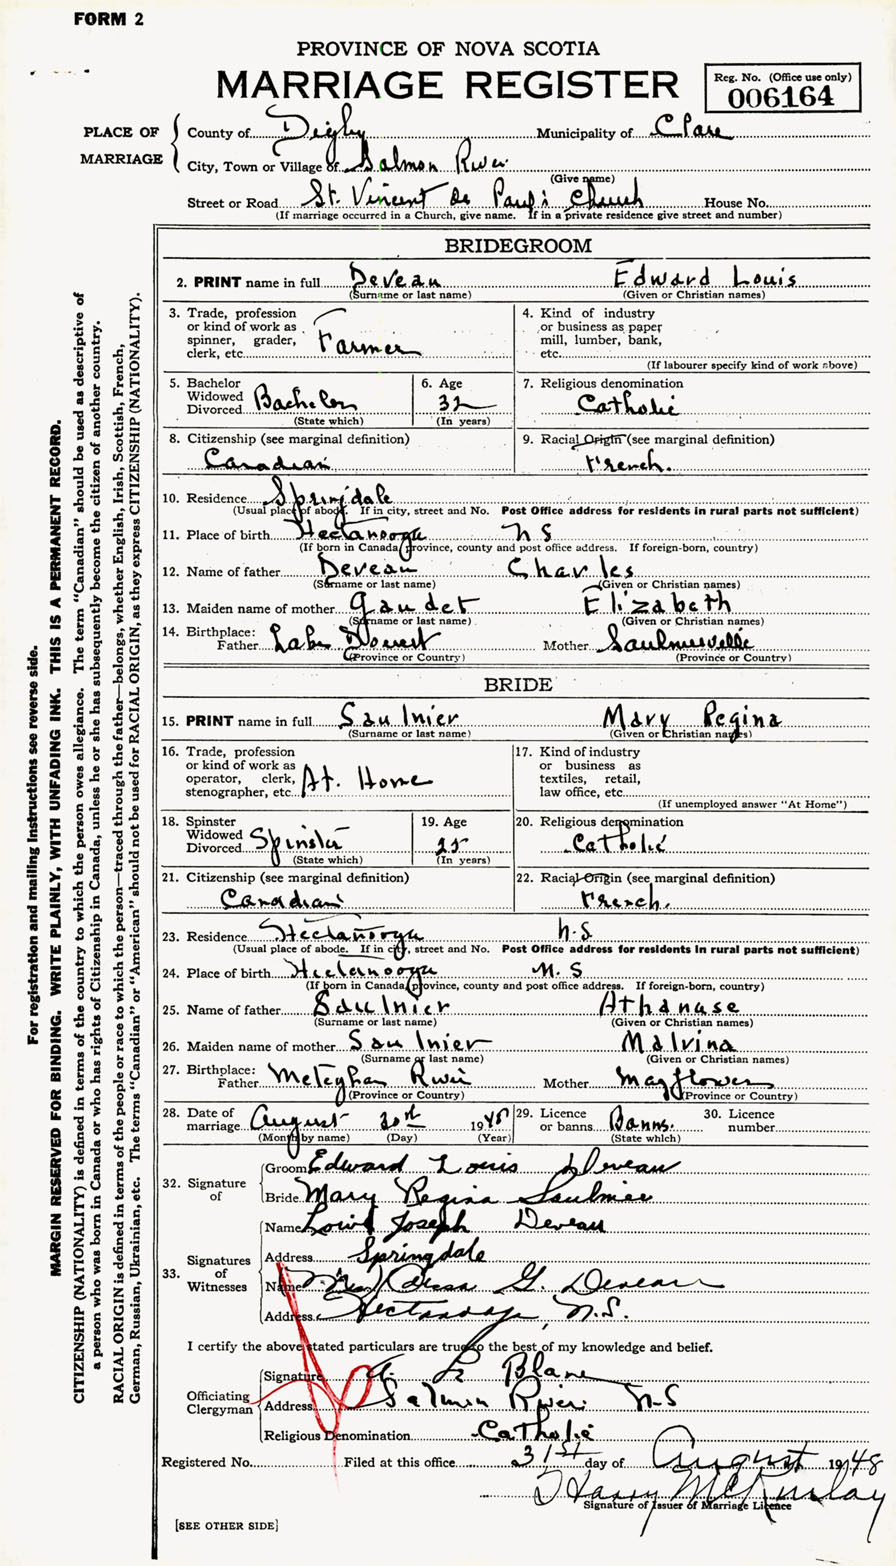 FORM 2
PROVINCE OF NOVA SCOTIA
MARRIAGE REGISTER
Reg. No. (Office use only)
006164
PLACE OF MARRIAGE
County of Digby Municipality of Clare
City, Town or Village of Salmon River
(Give name)
Street or Road St. Vincent de Paul's Church House No.
(If marriage occurred in a Church, give name. If in a private residence give street and number)
BRIDEGROOM
2. PRINT name in full Deveau Edward Louis
(Surname or last name) (Given or Christian names)
3. Trade, profession or kind of work as spinner, grader, clerk, etc. Farmer
4. Kind of industry or business as paper mill, lumber, bank, etc.
(If labourer specify kind of work above)
5. Bachelor Widowed Divorced Bachelor
(State which)
6. Age 32
(In years)
7. Religious denomination
Catholic
8. Citizenship (see marginal definition)
Canadian
9. Racial Origin (see marginal definition)
French.
10. Residence Springdale
(Usual place of abode. If in city, street and No. Post Office address for residents in rural parts not sufficient)
11. Place of birth Hectanooga N S
(If born in Canada, province, county and post office address. If foreign-born, country)
12. Name of father Deveau Charles
(Surname or last name) (Given or Christian names)
13. Maiden name of mother Gaudet Elizabeth
(Surname or last name) (Given or Christian names)
14. Birthplace: Father Lake Doucet Mother Saulnierville
(Province or Country) (Province or Country)
BRIDE
15. PRINT name in full Saulnier Mary Regina
(Surname or last name) (Given or Christian names)
16. Trade, profession or kind of work as operator, clerk, stenographer, etc. At. Home
17. Kind of industry or business as textiles, retail, law office, etc.
(If unemployed answer "At Home")
18. Spinster Widowed Divorced Spinster
(State which)
19. Age
(In years)
20. Religious denomination
Catholic
21. Citizenship (see marginal definition)
Canadian
22. Racial Origin (see marginal definition)
French.
23. Residence Hectanooga N.S
(Usual place of abode. If in city, street and No. Post Office address for residents in rural parts not sufficient)
24. Place of birth Hectanooga N.S
(If born in Canada, province, county and post office address. If foreign-born, country)
25. Name of father Saulnier Athanase
(Surname or last name) (Given or Christian names)
26. Maiden name of mother Saulnier Malvina
(Surname or last name) (Given or Christian names)
27. Birthplace: Father Meteghan River Mother Mayflower
(Province or Country) (Province or Country)
28. Date of marriage August 1948
(Month by name) (Day) (Year)
29. Licence or banns Banns.
(State which)
30. Licence number
32. Signature of
Groom Edward Louis Deveau
Bride Mary Regina Saulnier
33. Signatures of Witnesses
Name Louis Joseph Deveau
Address Springdale
Name G. Deveau
Address Hectanooga, N.S.
I certify the above stated particulars are true to the best of my knowledge and belief.
Officiating Clergyman
Signature Le Blanc
Address Salmon River N-S
Religious Denomination Catholic
Registered No. Filed at this office 31st day of August 1948
Harry McKinlay
Signature of Issuer of Marriage Licence
[SEE OTHER SIDE]
For registration and mailing instructions see reverse side.
MARGIN RESERVED FOR BINDING. WRITE PLAINLY, WITH UNFADING INK. THIS IS A PERMANENT RECORD.
CITIZENSHIP (NATIONALITY) is defined in terms of the country to which the person owes allegiance. The term "Canadian" should be used as descriptive of
a person who was born in Canada or who has rights of Citizenship in Canada, unless he or she has subsequently become the citizen of another country.
RACIAL ORIGIN is defined in terms of the people or race to which the person—traced through the father—belongs, whether English, Irish, Scottish, French,
German, Russian, Ukrainian, etc. The terms "Canadian" or "American" should not be used for RACIAL ORIGIN, as they express CITIZENSHIP (NATIONALITY).